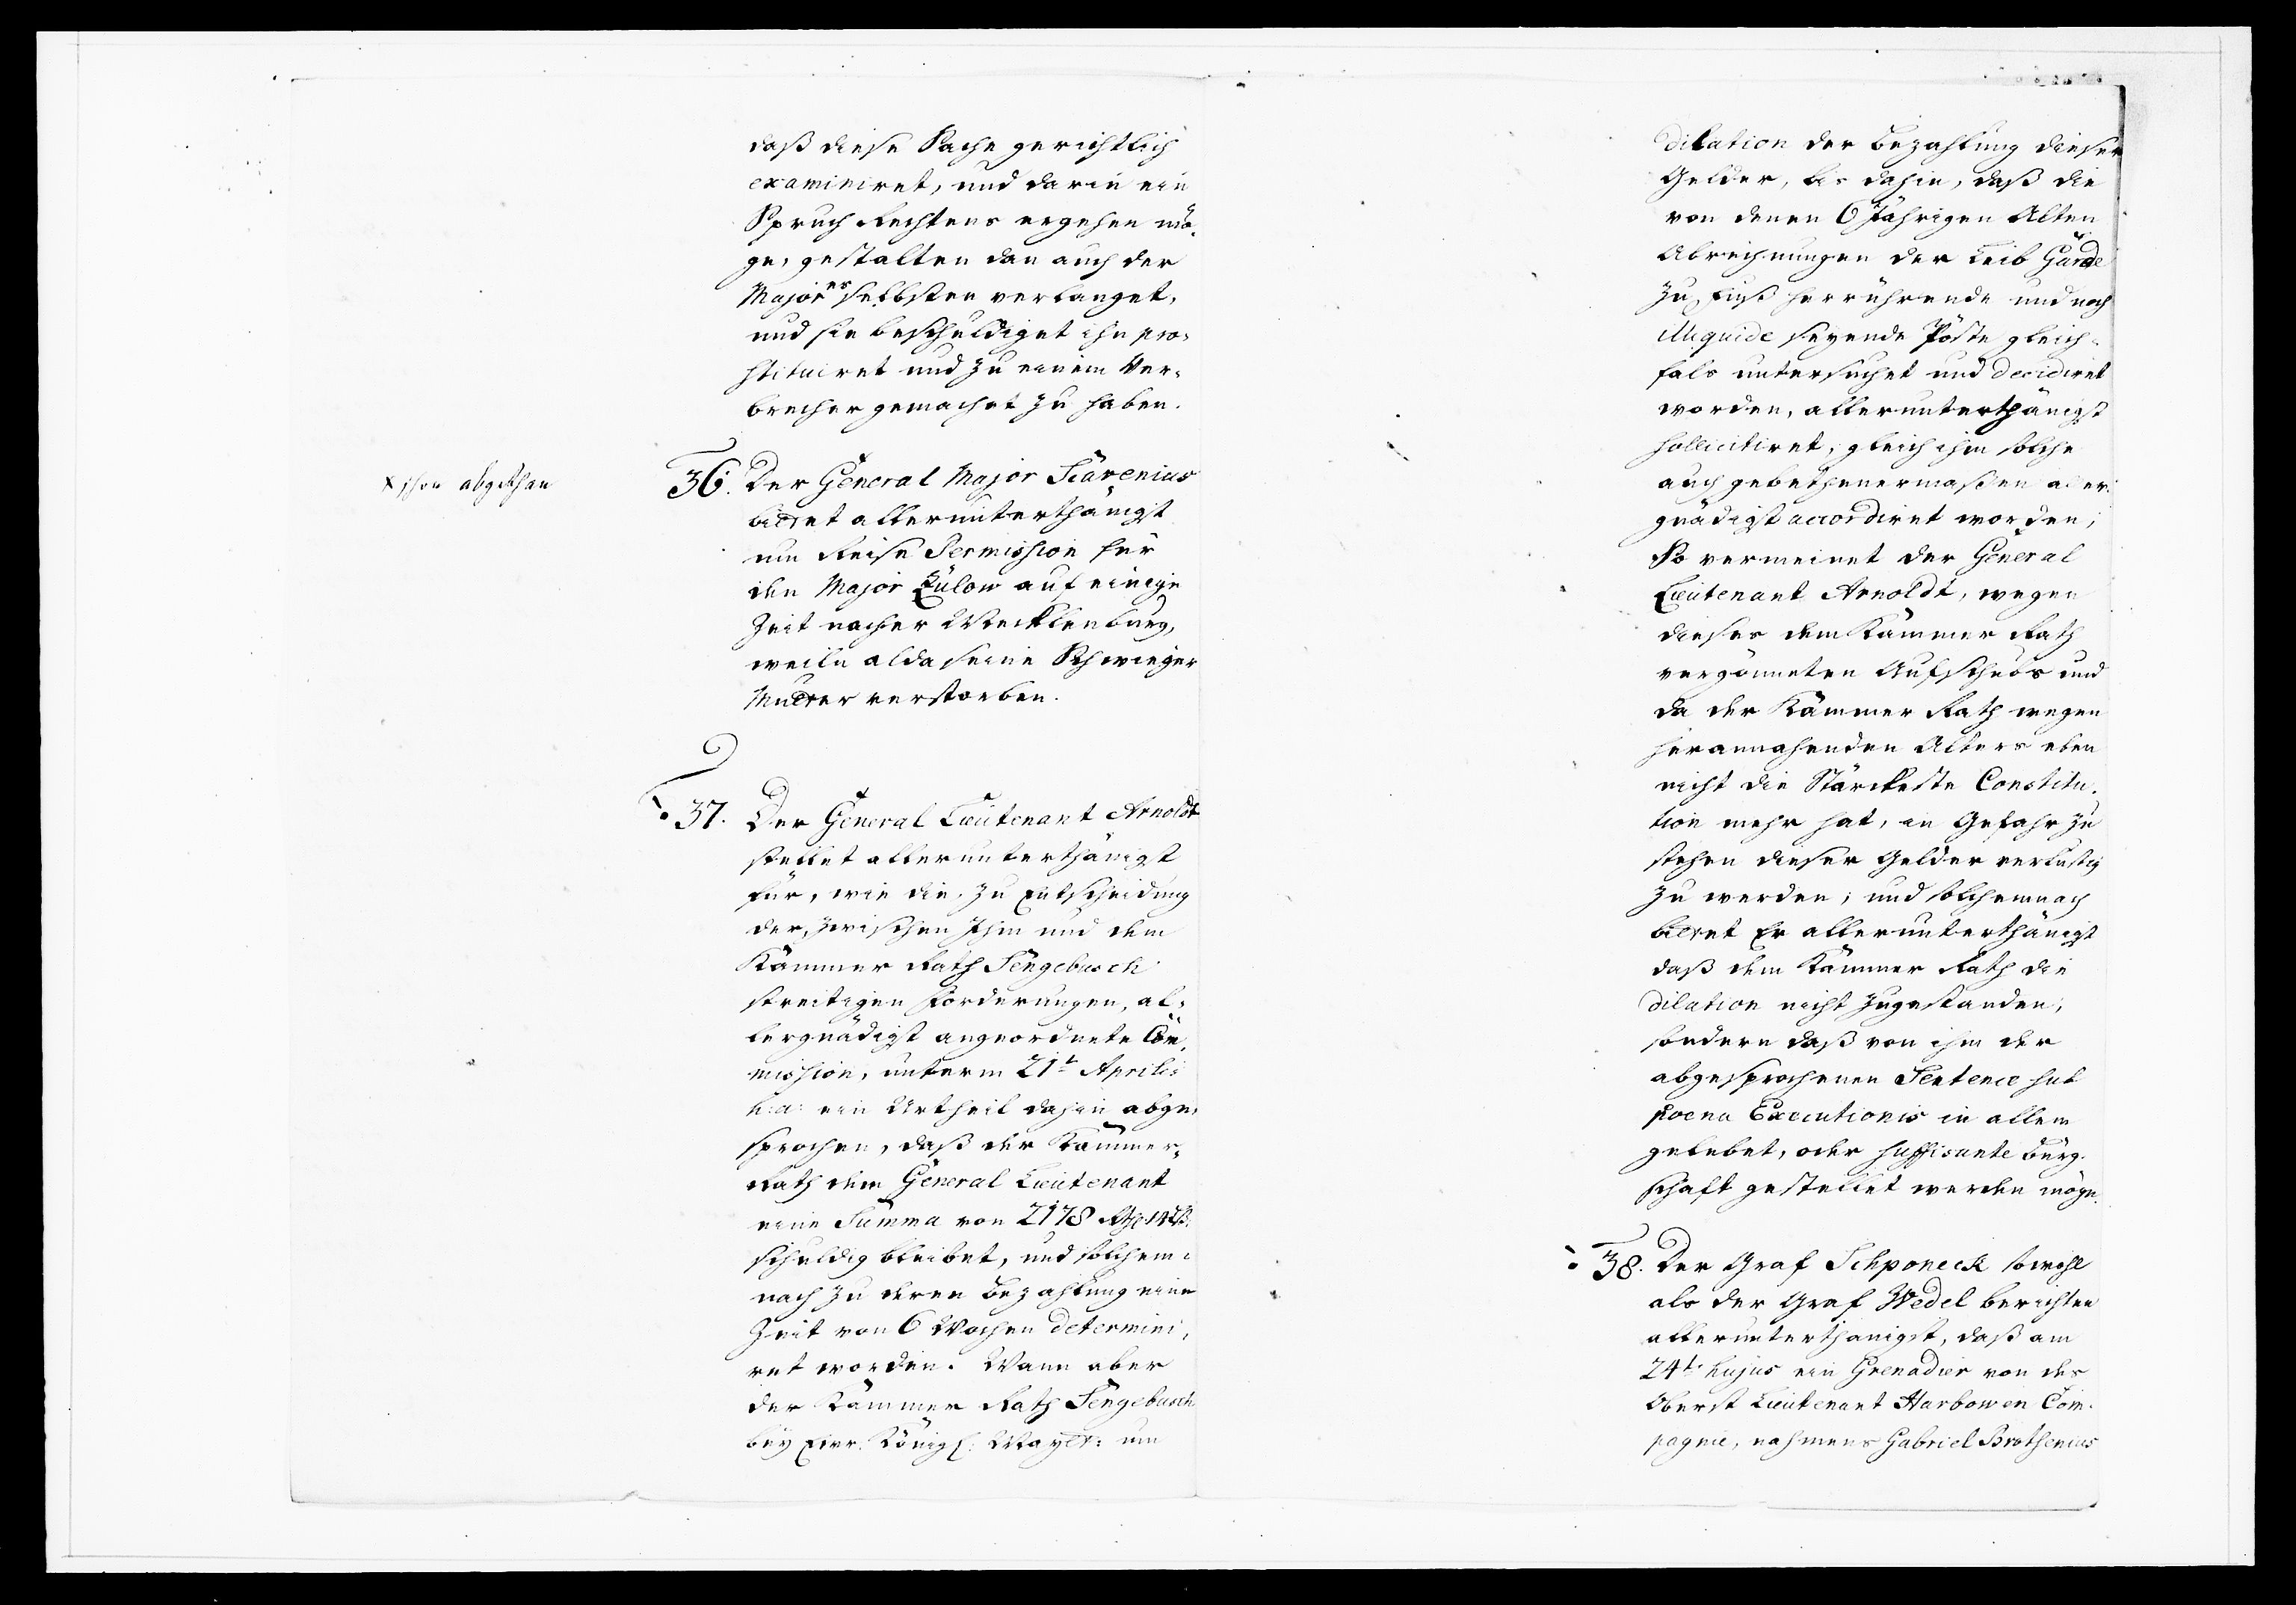 daß diese Sache gerichtlich
examiniret, und darin ein
Spruch Rechtens ergehen mö-
ge, gestalten dan auch der
Major es selbsten verlanget,
und sie beschuldiget ihn pro-
stituiret und zu einem Ver-
brecher gemachet zu haben.
x schon abgethan
36. Der General Major Scavenius
bittet allerunterthänigst
um Reise Permission für
den Major Zülow auf einige
Zeit nacher Mecklenburg,
weiln alda seine Schwieger
Mutter verstorben.
37. Der General Lieutenant Arnoldt
stellet allerunterthänigst
für, wie die, zu Entscheidung
der, zwischen Ihm und dem
Kammer Rath Sengebusch
streitigen Forderungen, al-
lergnädigst angeordnete Com-
mission, unterm 21t Aprilis
h: a: ein Urtheil dahin abge-
sprochen, daß der Kammer-
Rath dem General Lieutenant
eine Summa von 2178 Rthlr
schuldig bleibet, und solchem-
nach zu deren Bezahlung eine
Zeit von 6 Wochen determini-
ret worden. Wann aber
der Kammer Rath Sengebusch
bey Ewr. Königl: Mayett: um
dilation der Bezahlung dieser
Gelder, bis dahin, daß die
von denen 6 Jährigen Alten
Abrechnungen der Leib Garde
zu Fuß herrührende und noch
illiquide seyende Pöste gleich-
fals untersuchet und decidiret
worden, allerunterthänigst
sollicitiret, gleich ihm solche
auch gebethenermaßen aller-
gnädigst accordiret worden;
So vermeinet der General
Lieutenant Arnoldt, wegen
dieses dem Kammer Rath
vergönneten Aufschubs und
da der Kammer Rath wegen
herannahenden Alters eben
nicht die Stärckeste Constitu-
tion mehr hat, in Gefahr zu
stehen dieser Gelder verlustig
zu werden; und solchemnach
bittet Er allerunterthänigst
daß dem Kammer Rath die
dilation nicht zugestanden,
sondern daß von ihm der
abgesprochenen Sentence sub
poena Executionis in allem
gelebet, oder suffisante Bürg-
schaft gestellet werden möge.
38. Der Graf Schponeck sowohl
als der Graf Wedel berichten
allerunterthänigst, daß am
24t hujus ein Grenadier von des
Oberst Lieutenant Harbowen Com-
pagnie, nahmens Gabriel Brothenius